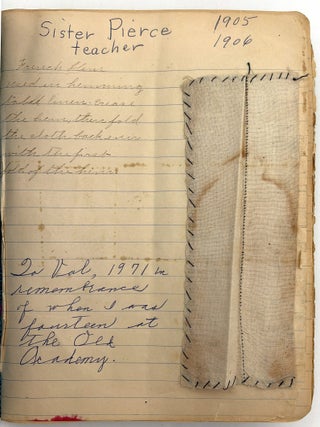 Sister Pierce
teacher
1905
1906
French Hem
used in hemming
table linen. Crease
the hem, then fold
the cloth back even
with the first
fold of the hem
To Val, 1971 in
remembrance
of when I was
fourteen at
the Old
Academy.